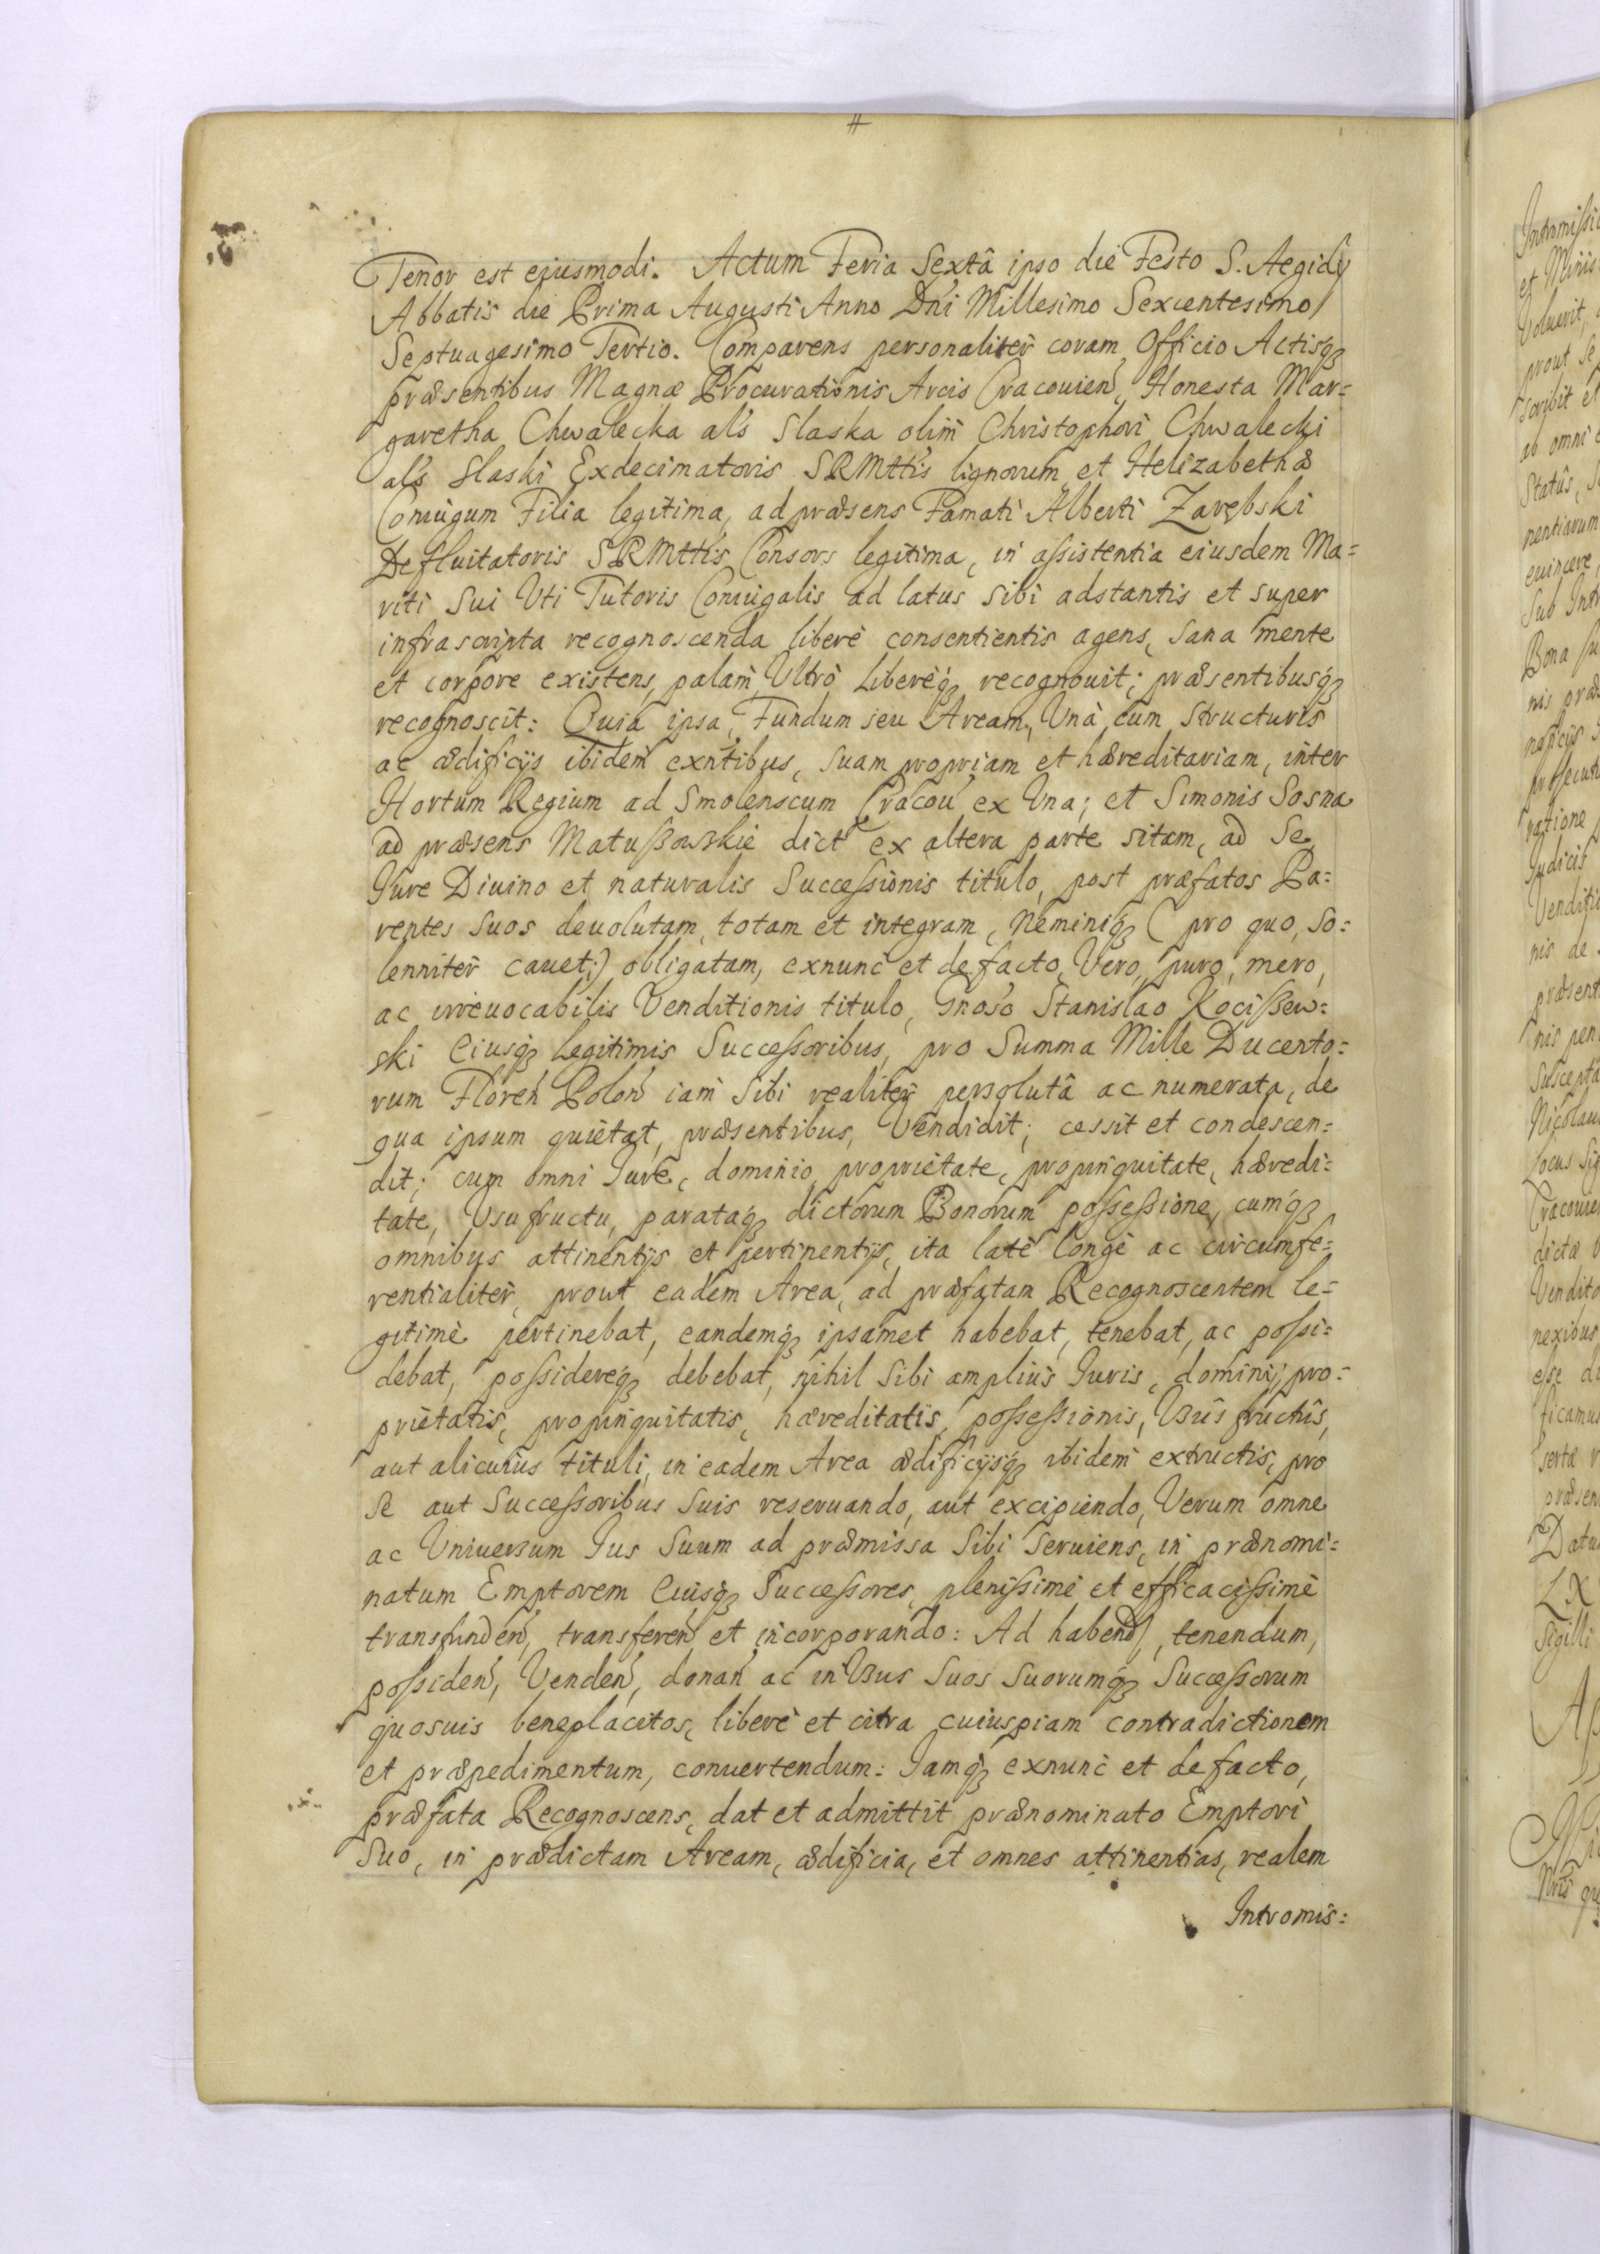 Tenor est ejusmodi. Actum Feria Sextâ ipso die Festo S. Aegidÿ
Abbatis die Prima Augusti Anno Dn̄i Millesimo Sexcentesimo
Septuagesimo Tertio. Comparens personalitèr coram Officio Actisq́ꝫ
præsentibus Magnæ Procurationis Arcis Cracouien̄, Honesta Mar=
garetha Chwalecka al's Slaska olim̄ Christophori Chwalecki
al's Slaski Exdecimatoris SRMtt̄is lignorum et Helizabethæ
Coniugum Filia legitima, ad præsens Famati Alberti Zarębski
Defluitatoris SRMtt̄is Consors legitima, in aſsistentia eiusdem Ma=
riti Sui Uti Tutoris Coniugalis ad latus sibi adstantis et super
infrascripta recognoscenda liberè consentientis agens, Sana mente
et corpore existens, palàm Ultrò Liberèq́ꝫ recognouit; præsentibusq́ꝫ
recognoscit: Quia ipsa, Fundum seu Aream, Unà cum Structuris
ac ædificÿs ibidem̄ exn̄tibus, Suam propriam et hæreditariam, inter
Hortum Regium ad Smolenscum Cracou̇ ex Una; et Simonis Sosna
ad præsens Matuſzowskie dict̄ ex altera parte sitam, ad Se
Jure Diuino et naturalis Succeſsionis titulo, post præfatos Pa=
rentes Suos deuolutam, totam et integram, Neminiq́ꝫ ( pro quo, So=
lenniter̄ cauet;) obligatam, exnunc et de facto, Vero, puro, mero,
ac irreuocabilis Venditionis titulo, Gn̄oso Stanislao Kociſzew=
ski Eiusq́ꝫ Legitimis Succeſsoribus, pro Summa Mille Ducento=
rum Floren̄ Polon̄ iam̄ Sibi realiter̄ persolutâ ac numerata, de
qua ipsum quiètat, præsentibus, Vendidit; cessit et condescen=
dit; cum omni Jure, dominio, proprietate, propinquitate, hæredi=
tate, Usufructu, parataq́ꝫ dictorum Bonorum poſseſsione, cumq́ꝫ
omnibus attinentÿs et pertinentÿs, ita latè longè ac circumfe=
rentialiter̄, prout eadem Area, ad præfatam Recognoscentem le=
gitimè pertinebat, eandemq́ꝫ ipsamet habebat, tenebat, ac poſsi=
debat, poſsidereq́ꝫ debebat, nihil Sibi ampliùs Juris, dominÿ, pro=
prietatis, propinquitatis, hæreditatis, poſseſsionis, Usûsfructûs,
aut alicuius tituli, in eadem Area ædificÿsq́ꝫ ibidem̄ extructis, pro
Se aut Succeſsoribus Suis reseruando, aut excipiendo, Verum omne
ac Universum Jus Suum ad præmissa Sibi Seruiens, in prænomi=
natum Emptorem Eiusq́ꝫ Succeſsores, pleniſsimè et efficaciſsimè
transfunden̄, transferen̄ et incorporando: Ad habend̄, tenendum,
poſsiden̄, Venden̄, donan̄ ac in Usus Suos Suorumq́ꝫ Succeſsorum
quosuis beneplacitos, liberè et citra cuiuspiam contradictionem
et præpedimentum, conuertendum: Jamq́ꝫ exnunc et de facto,
præfata Recognoscens, dat et admittit prænominato Emptori
Suo, in prædictam Aream, ædificia, et omnes attinentias, realem
Intromis=